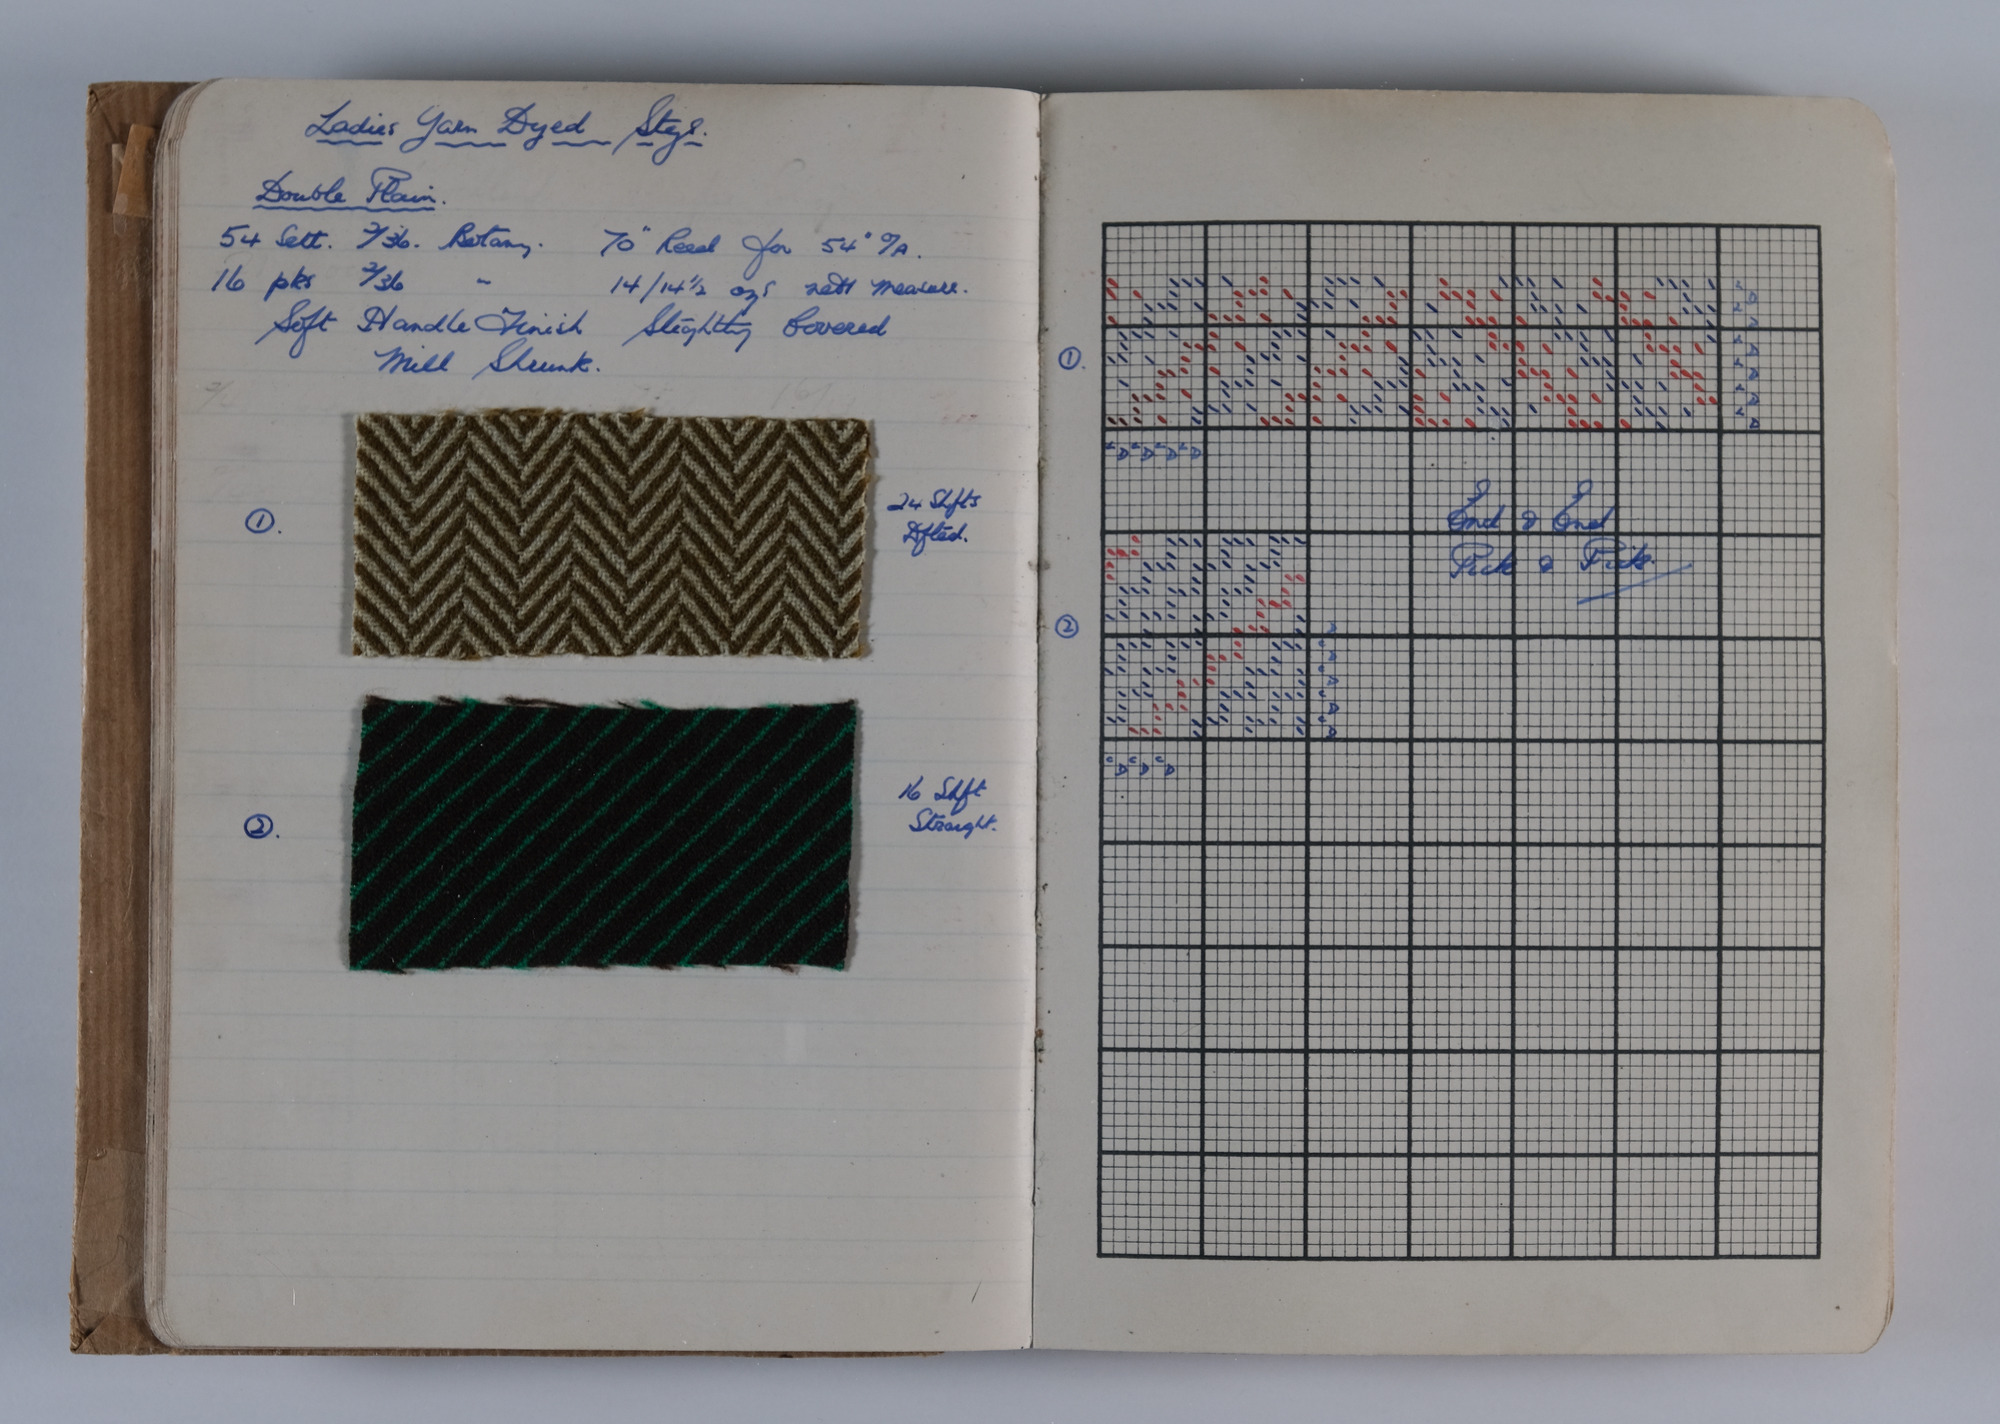 Ladies Yarn Dyed Stgs.
Double Plain.
54 Sett. 2/36. Botany. 70" Reed for 54" O/A.
16 pks 2/36 " 14/14½ ozs nett measure.
Soft Handle Finish Slightly Covered
Mill Shrunk.
①.
24 Shfts
Dfted.
②.
16 Shft
Straight.
①.
End & End
Pick & Pick.
②